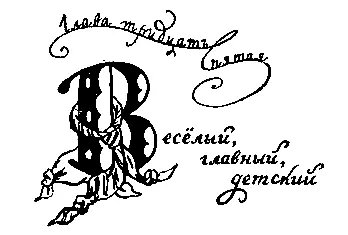 Глава тридцать пятая
Весёлый,
главный,
детский